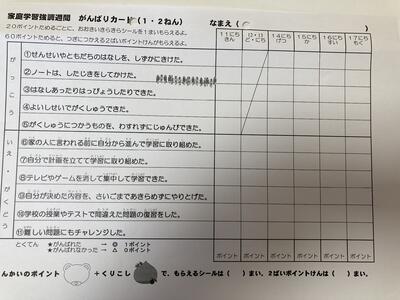 家庭学習強調週間 がんばりカード (1・2ねん) なまえ( )
20ポイントためるごとに、おおきいきらきらシールを1まいもらえるよ。
60ポイントためると、つぎにつかえる2ばいポイントけんがもらえるよ。
11にち きん
12・13 ど・にち
14にち げつ
15にち か
16にち すい
17にち もく
がっこう
①せんせいやともだちのはなしを、しずかにきけた。
②ノートは、したじきをしてかけた。
③はなしあったりはっぴょうしたりできた。
④よいしせいでがくしゅうできた。
⑤がくしゅうにつかうものを、わすれずにじゅんびできた。
いえ・がくどう
⑥家の人に言われる前に自分から進んで学習に取り組めた。
⑦自分で計画を立てて学習に取り組めた。
⑧テレビやゲームを消して集中して学習できた。
⑨自分が決めた内容を、さいごまであきらめずにやりとげた。
⑩学校の授業やテストで間違えた問題の復習をした。
⑪難しい問題にもチャレンジした。
とくてん ★がんばれた → ◎ 1ポイント
★がんばれなかった → △ 0ポイント
ポイント ポイント ポイント ポイント ポイント ポイント
んかいのポイント +くりこし で、もらえるシールは( )まい。2ばいポイントけんは( )まい。